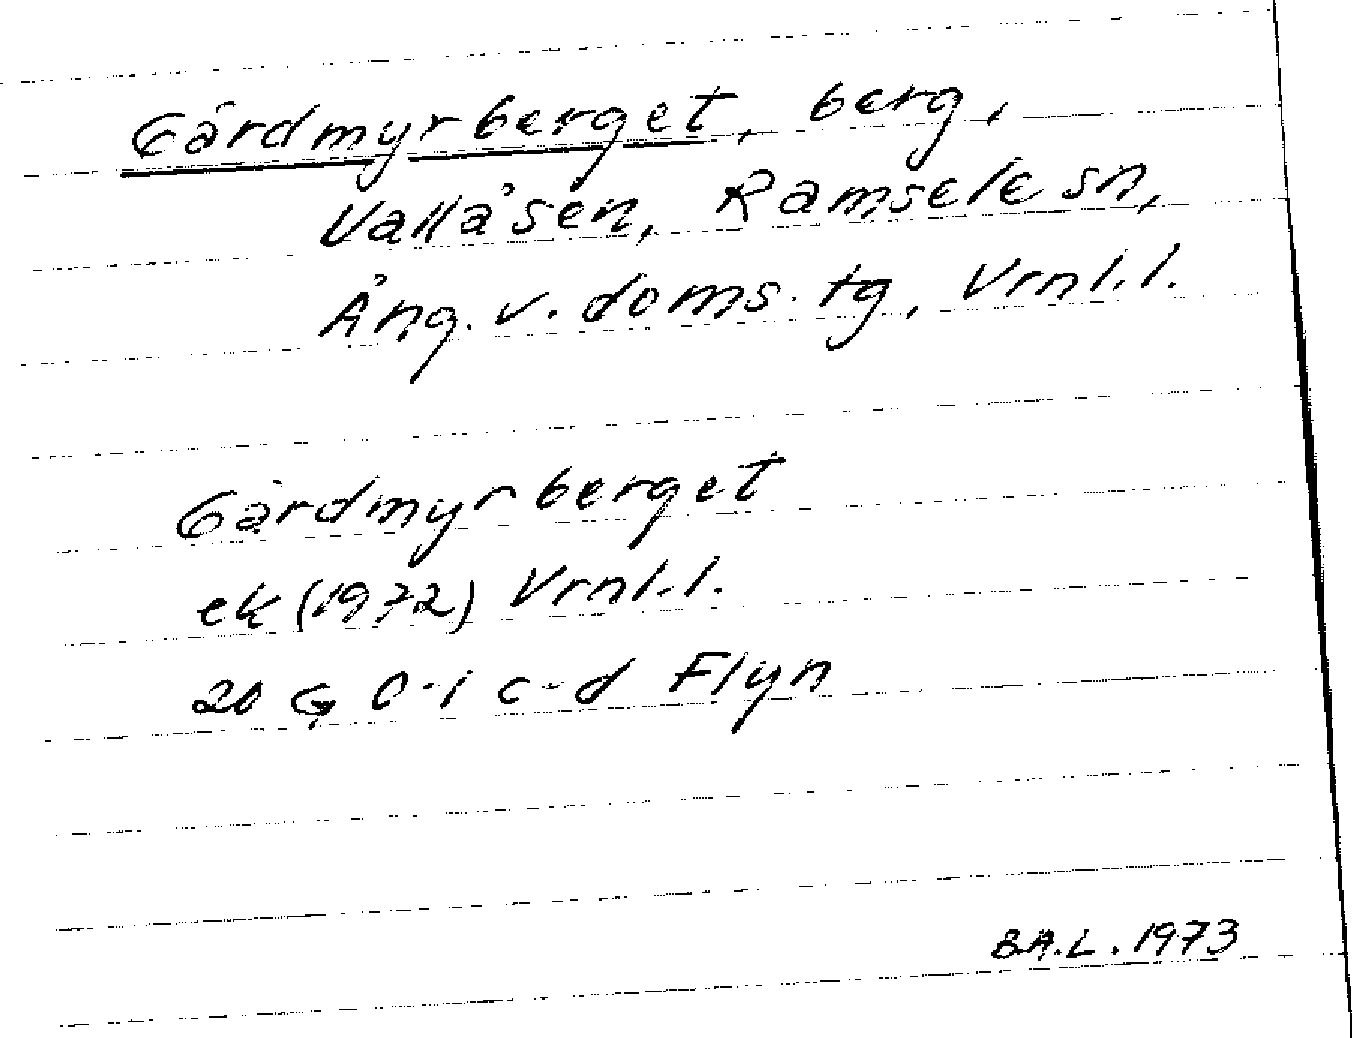 Gårdmyrberget, berg,
Vallåsen, Ramsele sn,
Ång. v. doms. tg, Vrnl.l.
Gårdmyrberget
ek (1972) Vrnl.l.
20 G 0-1 c-d Flyn
B.A.L. 1973